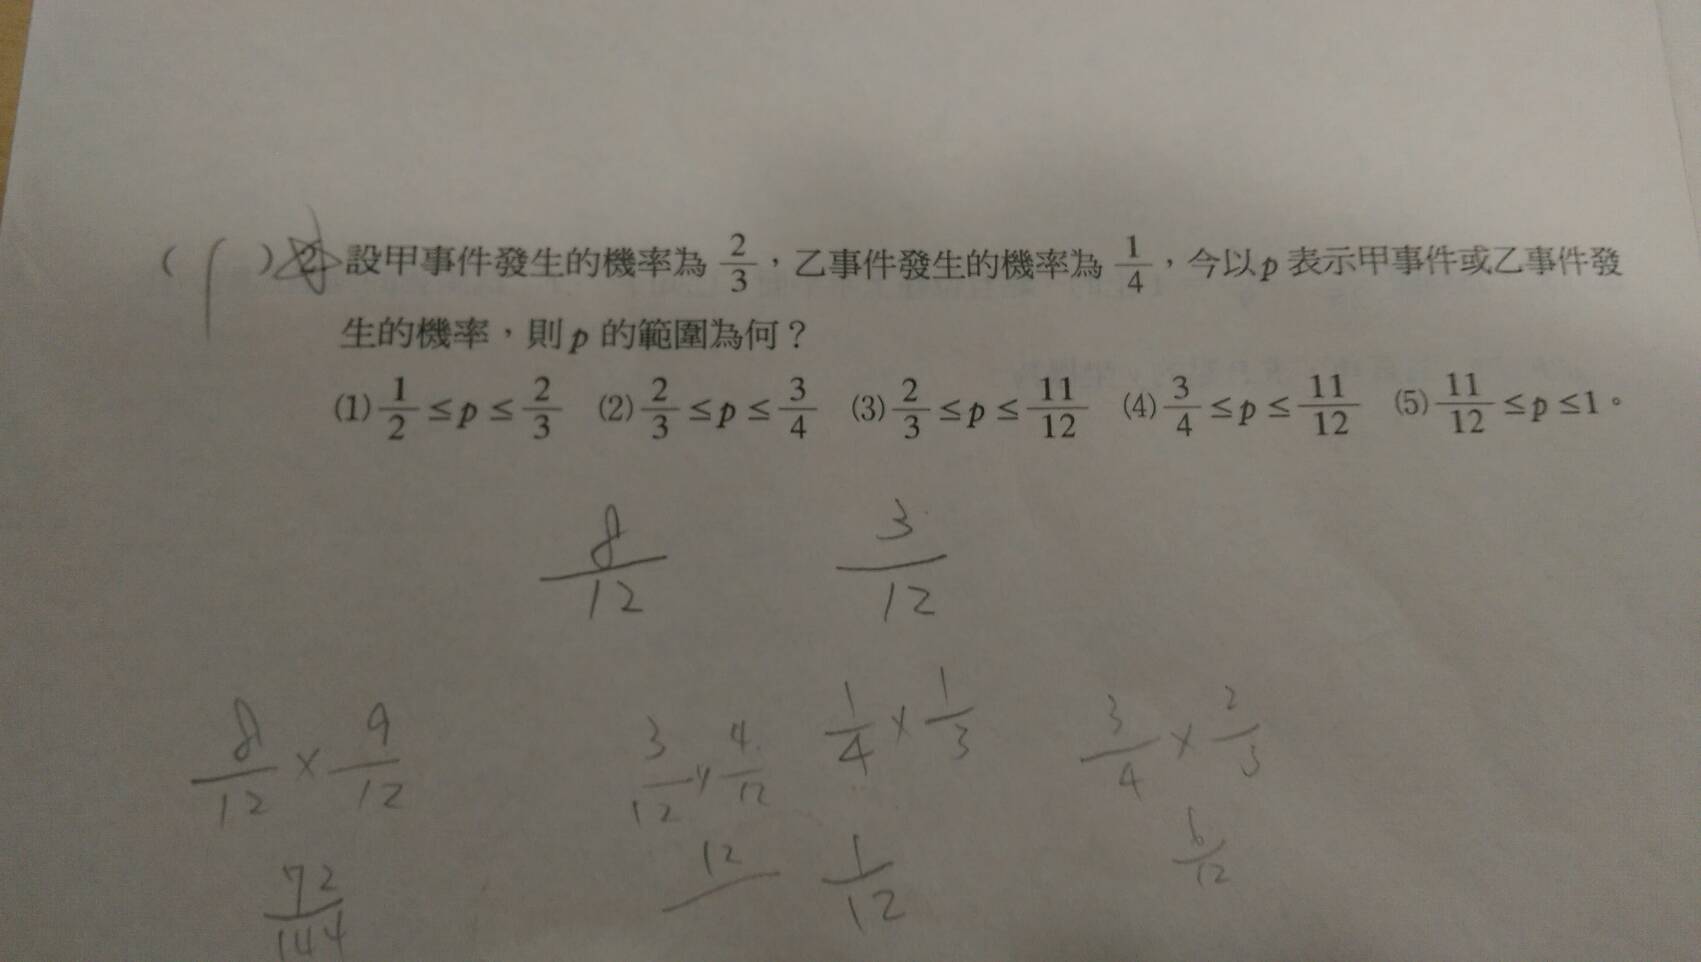 ( 1 ) 2. 設甲事件發生的機率為 2/3，乙事件發生的機率為 1/4，今以 p 表示甲事件或乙事件發
生的機率，則 p 的範圍為何？
(1) 1/2 ≤ p ≤ 2/3 (2) 2/3 ≤ p ≤ 3/4 (3) 2/3 ≤ p ≤ 11/12 (4) 3/4 ≤ p ≤ 11/12 (5) 11/12 ≤ p ≤ 1。
8/12 3/12
8/12 × 9/12 3/12 × 4/12 1/4 × 1/3 3/4 × 2/3
72/144 12/ 1/12 6/12